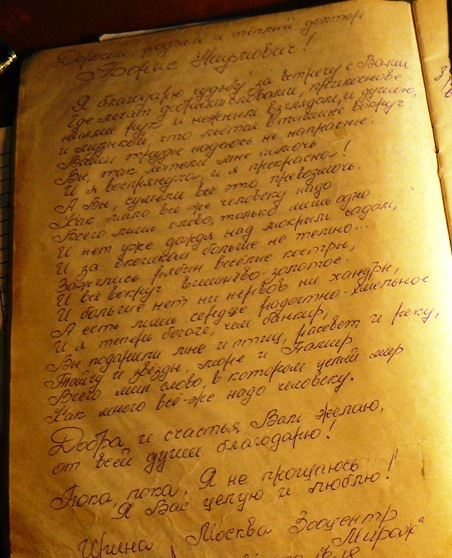 Дорогой, родной и тёплый доктор
Борис Наумович!
Я благодарю судьбу за встречу с Вами
Где лечат добрыми словами, прикоснове-
ниями рук и нежным взглядом, и душою,
и музыкой, что льётся в тишине вокруг.
Ваши труды надеюсь не напрасны.
Вы, так мне помочь
И я воспрянула, и я прекрасна!
А Вы, сумели всё это превозмочь.
Как мало всё же человеку надо
Всего лишь слово, только лишь одно
И нет уже дождя над мокрым садом,
И за окошком больше не темно...
Зажглись рябин весёлые костры,
И всё вокруг вишнёво-золотое
И больше нет ни нервов ни хандры,
А есть лишь сердце радостно-хмельное
И я теперь богаче, чем банкир,
Вы подарили мне и птиц, рассвет и реку,
Тайгу и звёзды, море и Памир
Всего лишь слово, в котором целый мир
Как много всё-же надо человеку.
Добра и счастья Вам желаю,
от всей души благодарю!
Пока, пока. Я не прощаюсь
Я Вас целую и люблю!
Ирина Москва Зооцентр
"Мираж"